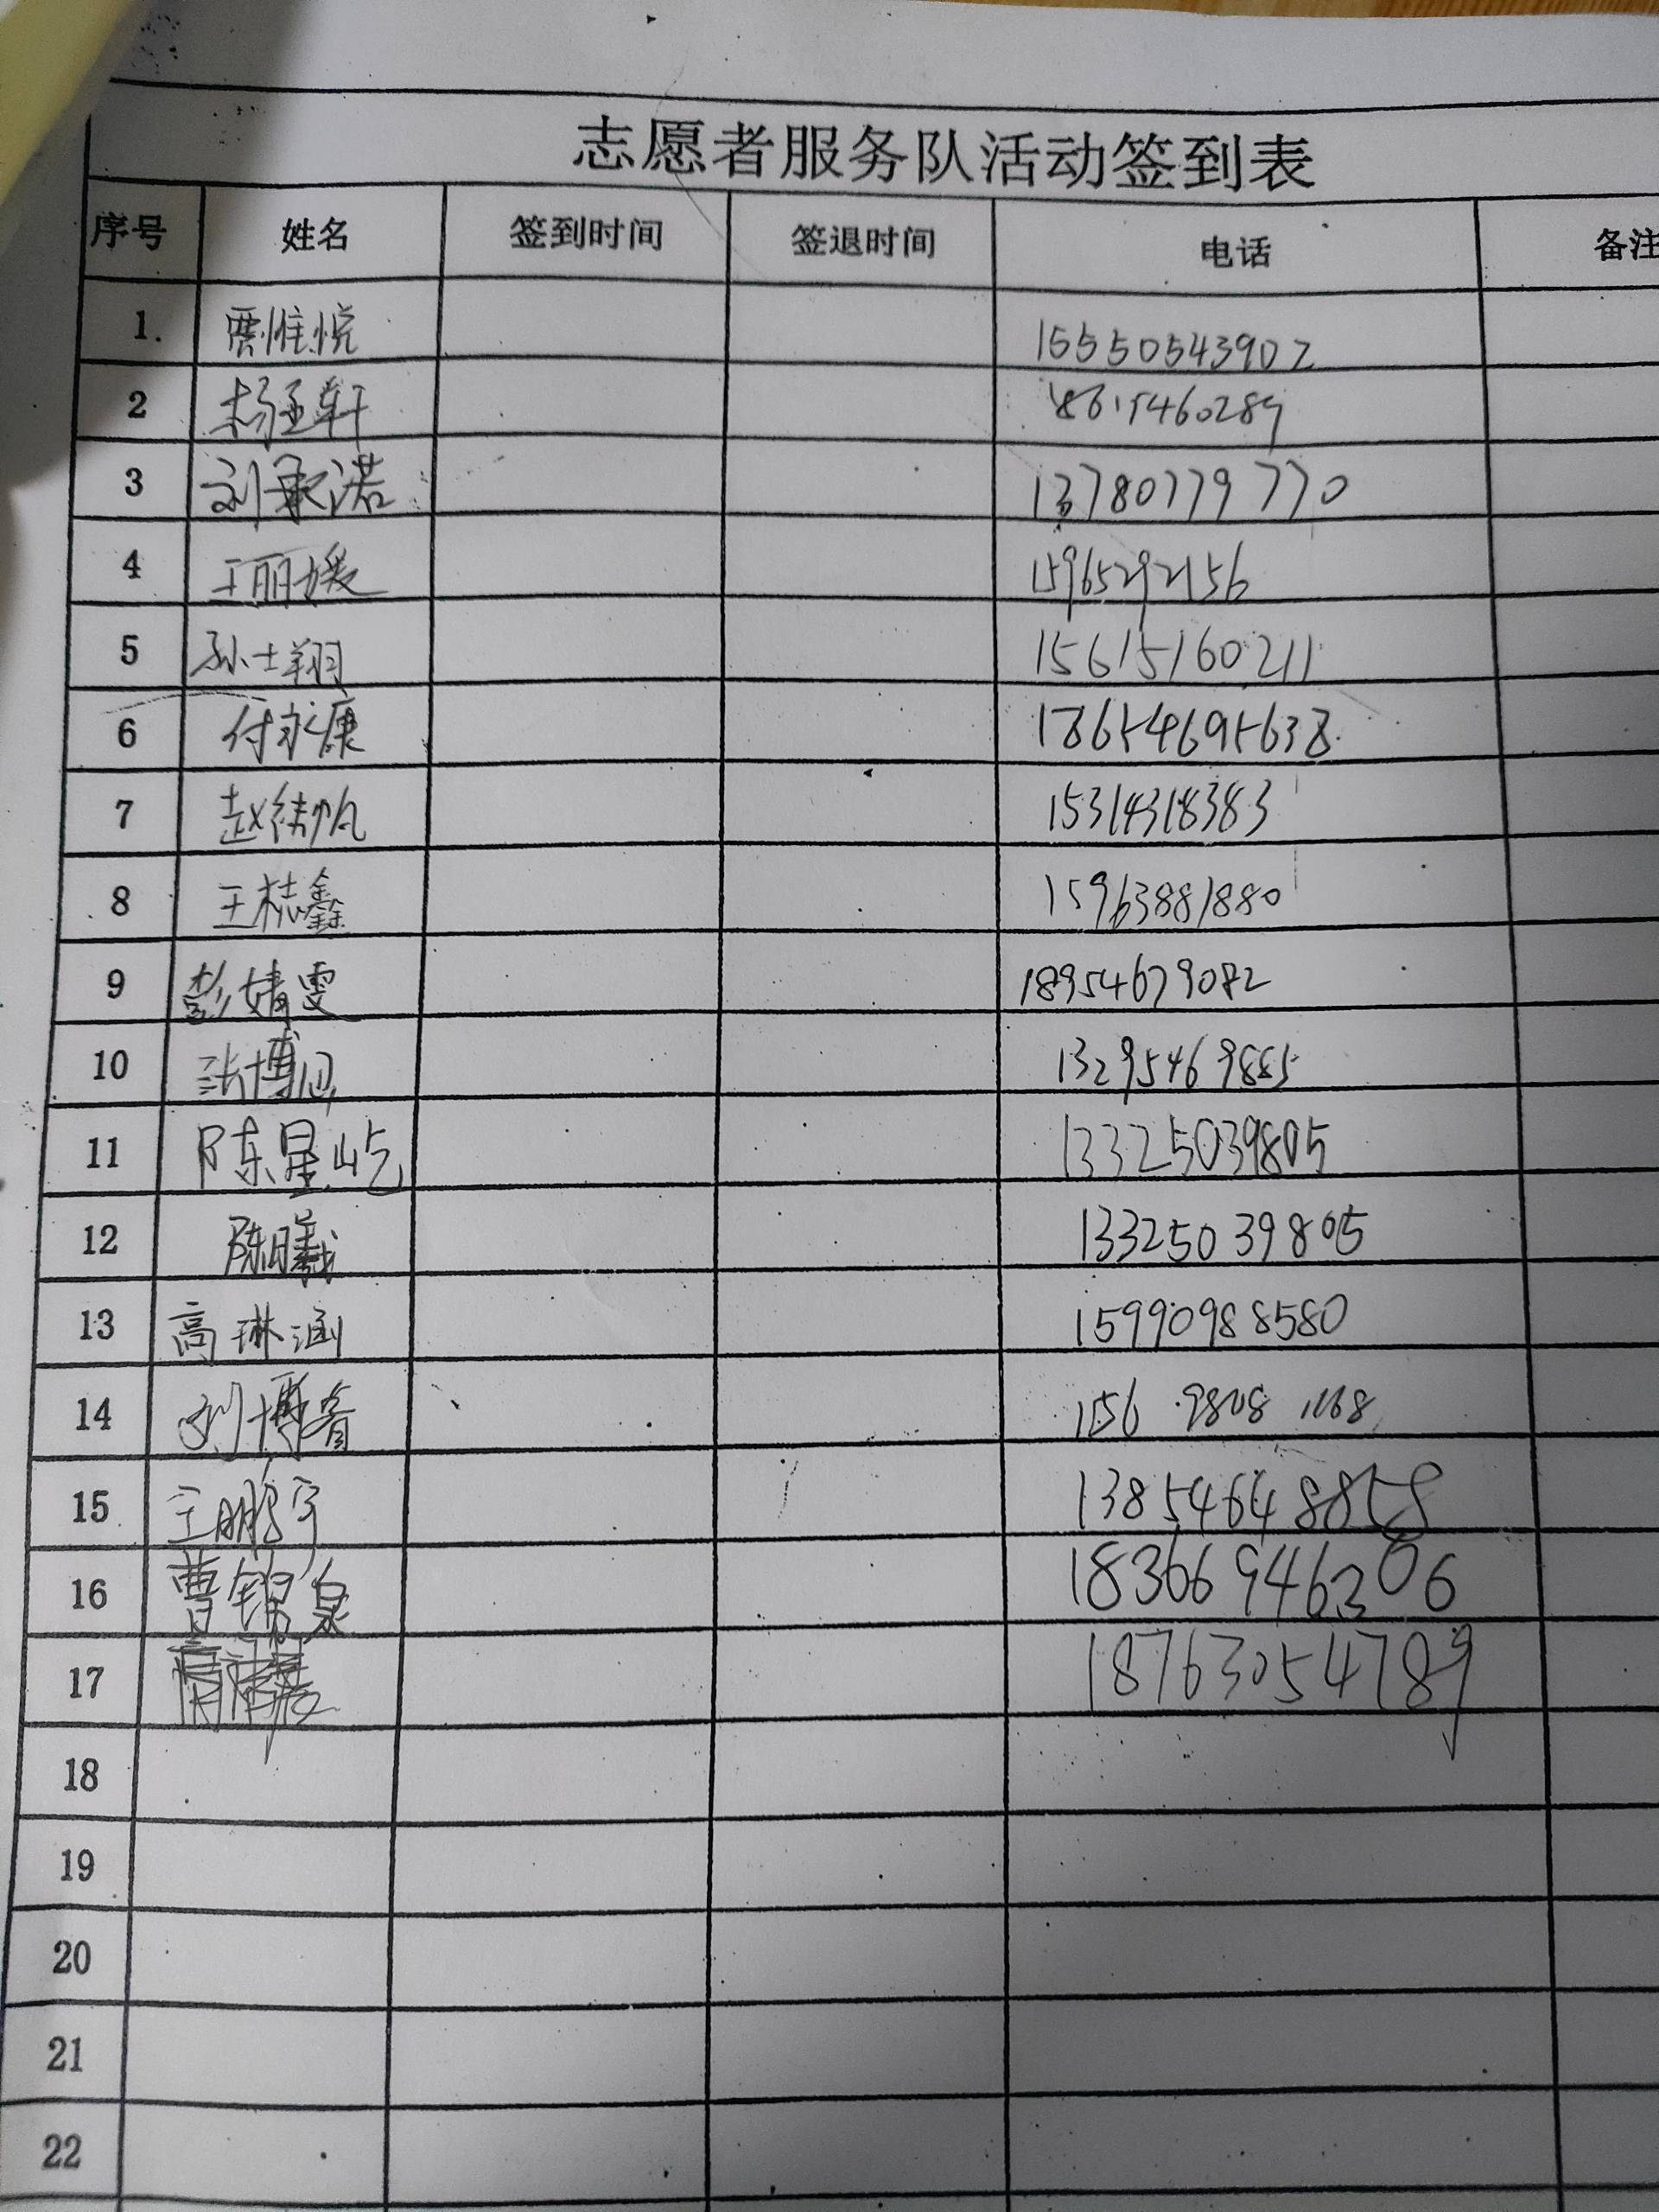 志愿者服务队活动签到表
序号 姓名 签到时间 签退时间 电话 备注
1. 15550543902
2 杨孟轩
3 刘承诺 13780779770
4 王丽媛 15965292156
5 孙士翔 15615160211
6 付永康 18654695638
7 15314318383
8 王梽鑫 15963881880
9 彭婧雯 18954679082
10 13295469885
11 陈星屹 13325039805
12 陈曦 13325039805
13 高琳涵 15990988580
14 刘博睿 156 9808 1168
15 王鹏宇 13854648858
16 曹锦泉 18366946306
17 18763054789
18
19
20
21
22